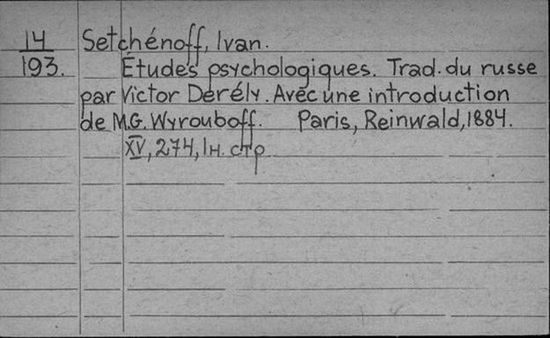 14
193.
Setchénoff, Ivan.
Études psychologiques. Trad. du russe
par Victor Derély. Avec une introduction
de M.G. Wyrouboff. Paris, Reinwald, 1884.
XV, 274, 1н. стр